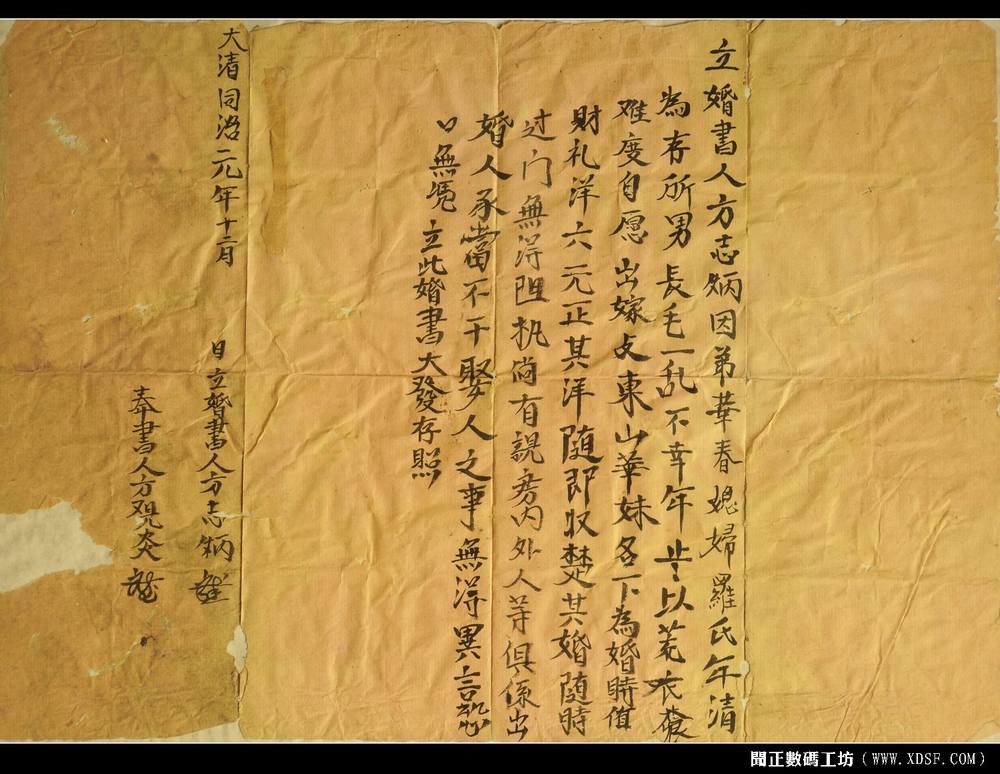 立婚書人方志炳因弟華春媳婦羅氏年清
為存所男長毛一乱不幸年 以荒衣
难度自愿出嫁 東山華妹名下為婚時值
財礼洋六元正其洋随即收楚其婚随時
过门無淂阻执尚有説房内外人等俱係出
婚人承當不干娶人之事無淂異言恐
口無凴立此婚書大發存照
大清同治元年十二月
日立婚書人方志炳
奉書人方观炎
聞正數碼工坊（www.XDSF.COM）